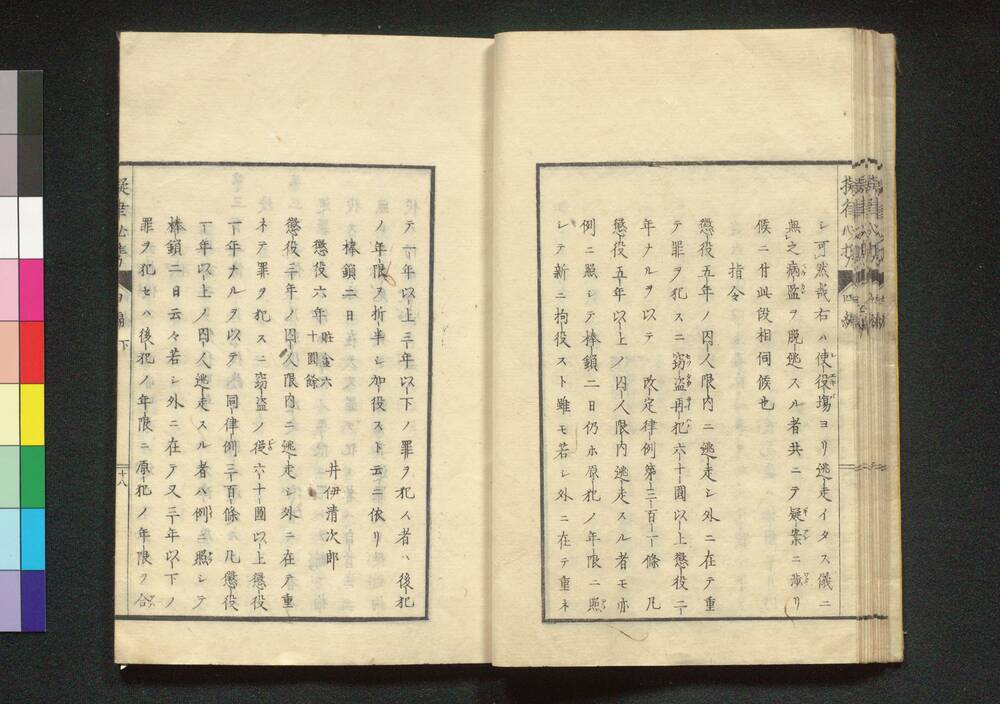 シ可然哉右ハ使役場ヨリ逃走イタス儀ニ
無之病監ヲ脱逃スル者共ニテ疑案ニ渉リ
候ニ付此段相伺候也
指令
懲役五年ノ囚人限内ニ逃走シ外ニ在テ重
テ罪ヲ犯スニ窃盗再犯六十圓以上懲役二
年ナルヲ以テ 改定律例第三百一條 凡
懲役五年以上ノ囚人限内逃走スル者モ亦
例ニ照シテ棒鎖二日仍ホ原犯ノ年限ニ照
シテ新ニ拘役スト雖モ若シ外ニ在テ重ネ
テ一年以上三年以下ノ罪ヲ犯ス者ハ後犯
ノ年限ヲ折半シ加役スト云ニ依リ
棒鎖二日
懲役六年 賍金六十圓餘
井伊清次郎
懲役三年ノ囚人限内ニ逃走シ外ニ在テ重
ネテ罪ヲ犯スニ窃盗ノ従六十圓以上懲役
一年ナルヲ以テ 同律例三百條凡懲役
一年以上ノ囚人逃走スル者ハ例ニ照シテ
棒鎖二日云々若シ外ニ在テ又三年以下ノ
罪ヲ犯セハ後犯ノ年限ニ原犯ノ年限ヲ合
下
十八